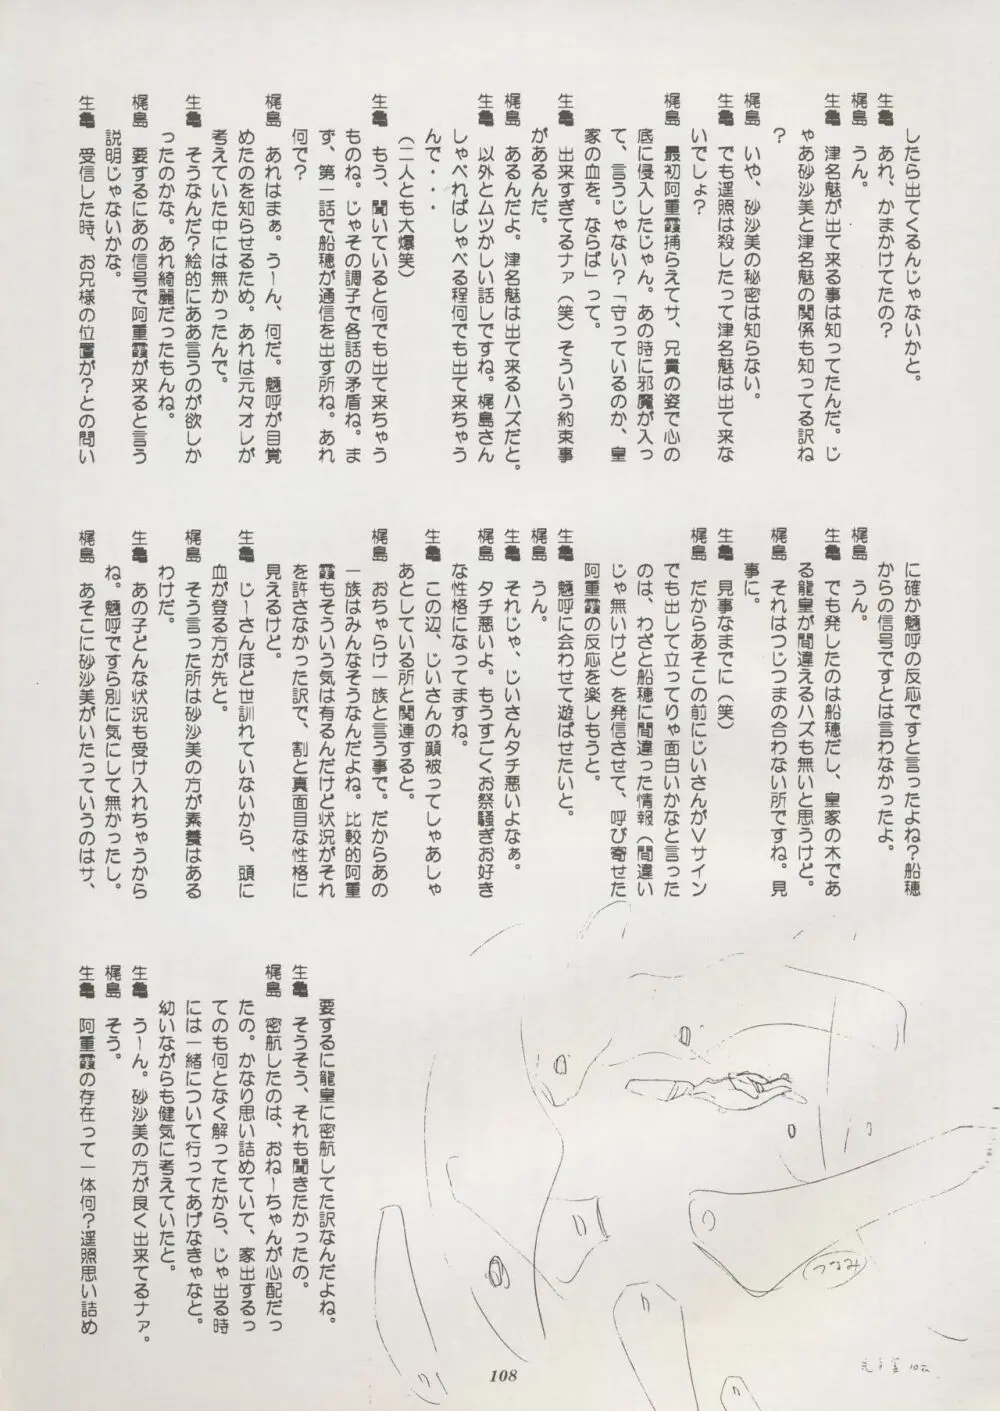 したら出てくるんじゃないかと。
生亀　あれ、かまかけてたの？
梶島　うん。
生亀　津名魅が出て来る事は知ってたんだ。じ
ゃあ砂沙美と津名魅の関係も知ってる訳ね
？
梶島　いや、砂沙美の秘密は知らない。
生亀　でも遥照は殺したって津名魅は出て来な
いでしょ？
梶島　最初阿重霞捕らえてサ、兄貴の姿で心の
底に侵入したじゃん。あの時に邪魔が入っ
て、言うじゃない？「守っているのか、皇
家の血を。ならば」って。
生亀　出来すぎてるナァ（笑）そういう約束事
があるんだ。
梶島　あるんだよ。津名魅は出て来るハズだと。
生亀　以外とムツかしい話しですね。梶島さん
しゃべればしゃべる程何でも出て来ちゃう
んで・・・
（二人とも大爆笑）
生亀　もう、聞いていると何でも出て来ちゃう
ものね。じゃその調子で各話の矛盾ね。ま
ず、第一話で船穂が通信を出す所ね。あれ
何で？
梶島　あれはまぁ。うーん、何だ。魎呼が目覚
めたのを知らせるため。あれは元々オレが
考えていた中には無かったんで。
生亀　そうなんだ？絵的にああ言うのが欲しか
ったのかな。あれ綺麗だったもんね。
梶島　要するにあの信号で阿重霞が来ると言う
説明じゃないかな。
生亀　受信した時、お兄様の位置が？との問い
に確か魎呼の反応ですと言ったよね？船穂
からの信号ですとは言わなかったよ。
梶島　うん。
生亀　でも発したのは船穂だし、皇家の木であ
る龍皇が間違えるハズも無いと思うけど。
梶島　それはつじつまの合わない所ですね。見
事に。
生亀　見事なまでに（笑）
梶島　だからあそこの前にじいさんがＶサイン
でも出して立ってりゃ面白いかなと言った
のは、わざと船穂に間違った情報（間違い
じゃ無いけど）を発信させて、呼び寄せた
阿重霞の反応を楽しもうと。
生亀　魎呼に会わせて遊ばせたいと。
梶島　うん。
生亀　それじゃ、じいさんタチ悪いよなぁ。
梶島　タチ悪いよ。もうすごくお祭騒ぎお好き
な性格になってますね。
生亀　この辺、じいさんの顔被ってしゃあしゃ
あとしている所と関連すると。
梶島　おちゃらけ一族と言う事で。だからあの
一族はみんなそうなんだよね。比較的阿重
霞もそういう気は有るんだけど状況がそれ
を許さなかった訳で、割と真面目な性格に
見えるけど。
生亀　じーさんほど世訓れていないから、頭に
血が登る方が先と。
梶島　そう言った所は砂沙美の方が素養はある
わけだ。
生亀　あの子どんな状況も受け入れちゃうから
ね。魎呼ですら別に気にして無かったし。
梶島　あそこに砂沙美がいたっていうのはサ、
要するに龍皇に密航してた訳なんだよね。
生亀　そうそう、それも聞きたかったの。
梶島　密航したのは、おねーちゃんが心配だっ
たの。かなり思い詰めていて、家出するっ
てのも何となく解ってたから、じゃ出る時
には一緒について行ってあげなきゃなと。
幼いながらも健気に考えていたと。
生亀　うーん。砂沙美の方が良く出来てるナァ。
梶島　そう。
生亀　阿重霞の存在って一体何？遥照思い詰め
つなみ
108